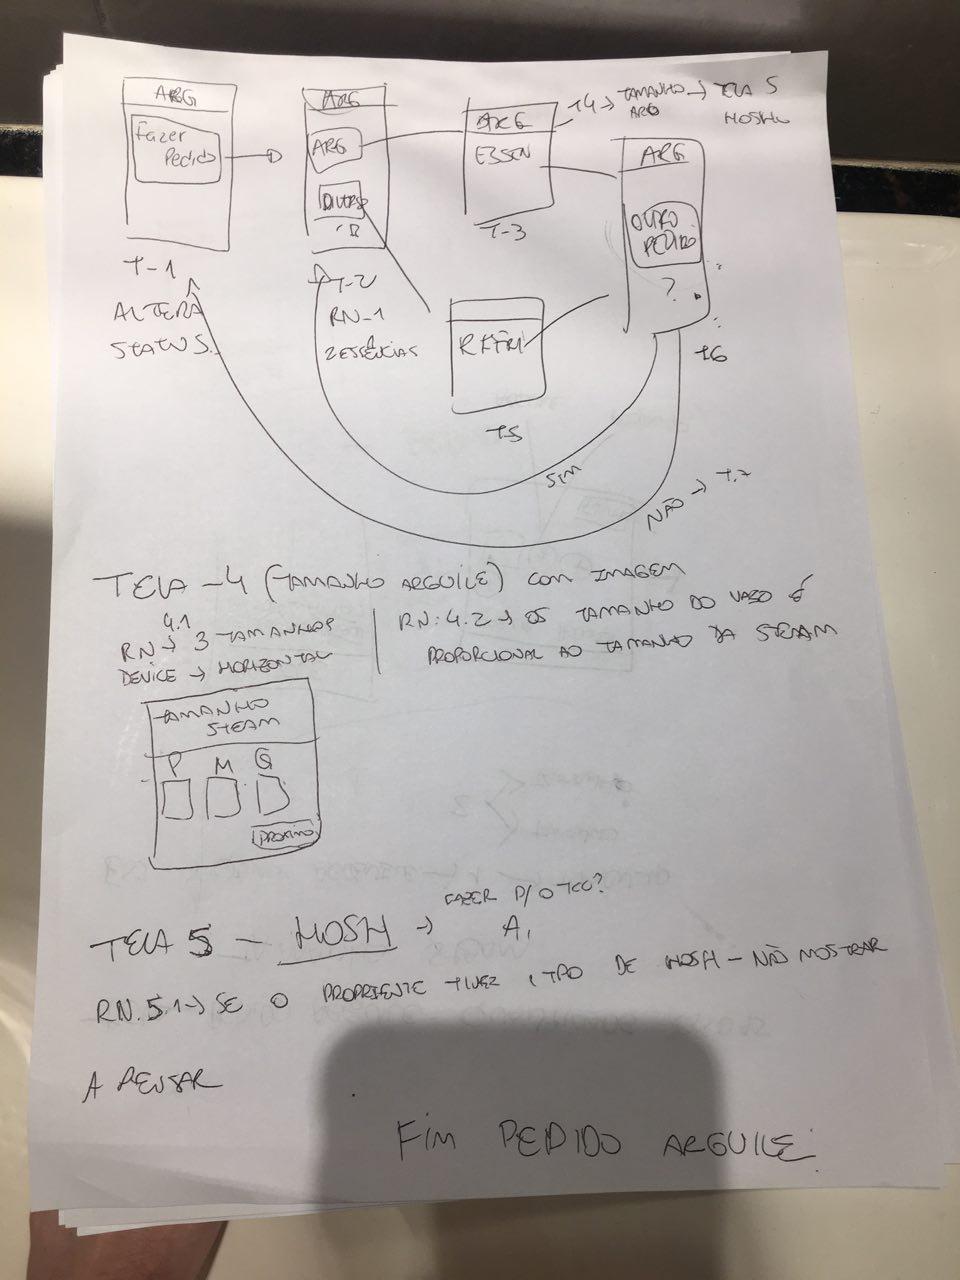 ARG
Fazer
Pedido
T-1
ALTERA
STATUS.
ARG
ARG
T-2
RN-1
ARG
ESSEN
T-3
T4 → TAMANHO → TELA 5
ARG
ARG
OUTRO
PEDIDO
?
T6
T5
SIM
NÃO → T.7
TELA - 4 (TAMANHO ARGUILE) COM IMAGEM
4.1
RN → 3 TAMANHOS
DEVICE → HORIZONTAL
RN: 4.2 → OS TAMANHO DO VASO É
PROPORCIONAL AO TAMANHO DA STEAM
TAMANHO
STEAM
P M G
PROXIMO
FAZER P/ O TCC?
TELA 5 - HOSH → A,
RN.5.1 → SE O TIVER 1 TIPO DE HOSH - NÃO MOSTRAR
A PENSAR
FIM PEDIDO ARGUILE.